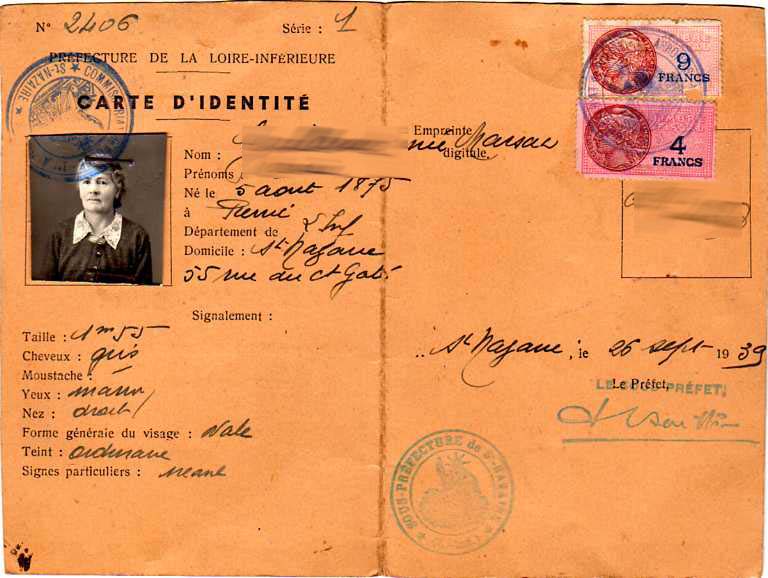 N° 2406 Série : 1
PRÉFECTURE DE LA LOIRE-INFÉRIEURE
CARTE D'IDENTITÉ
COMMISSARIAT
ST-NAZAIRE
Nom :
Prénoms
Né le 5 aout 1875
à
Département de L Inf
Domicile : St Nazaire
55 rue du Ct Gaté
Signalement :
Taille : 1m55
Cheveux : gris
Moustache :
Yeux : marron
Nez : droit
Forme générale du visage : ovale
Teint : ordinaire
Signes particuliers : néant
Empreinte
digitale
Marsac
9
FRANCS
4
FRANCS
St Nazaire, le 26 sept 1939
Le Préfet,
LE SOUS-PRÉFET,
SOUS-PRÉFECTURE de St-NAZAIRE